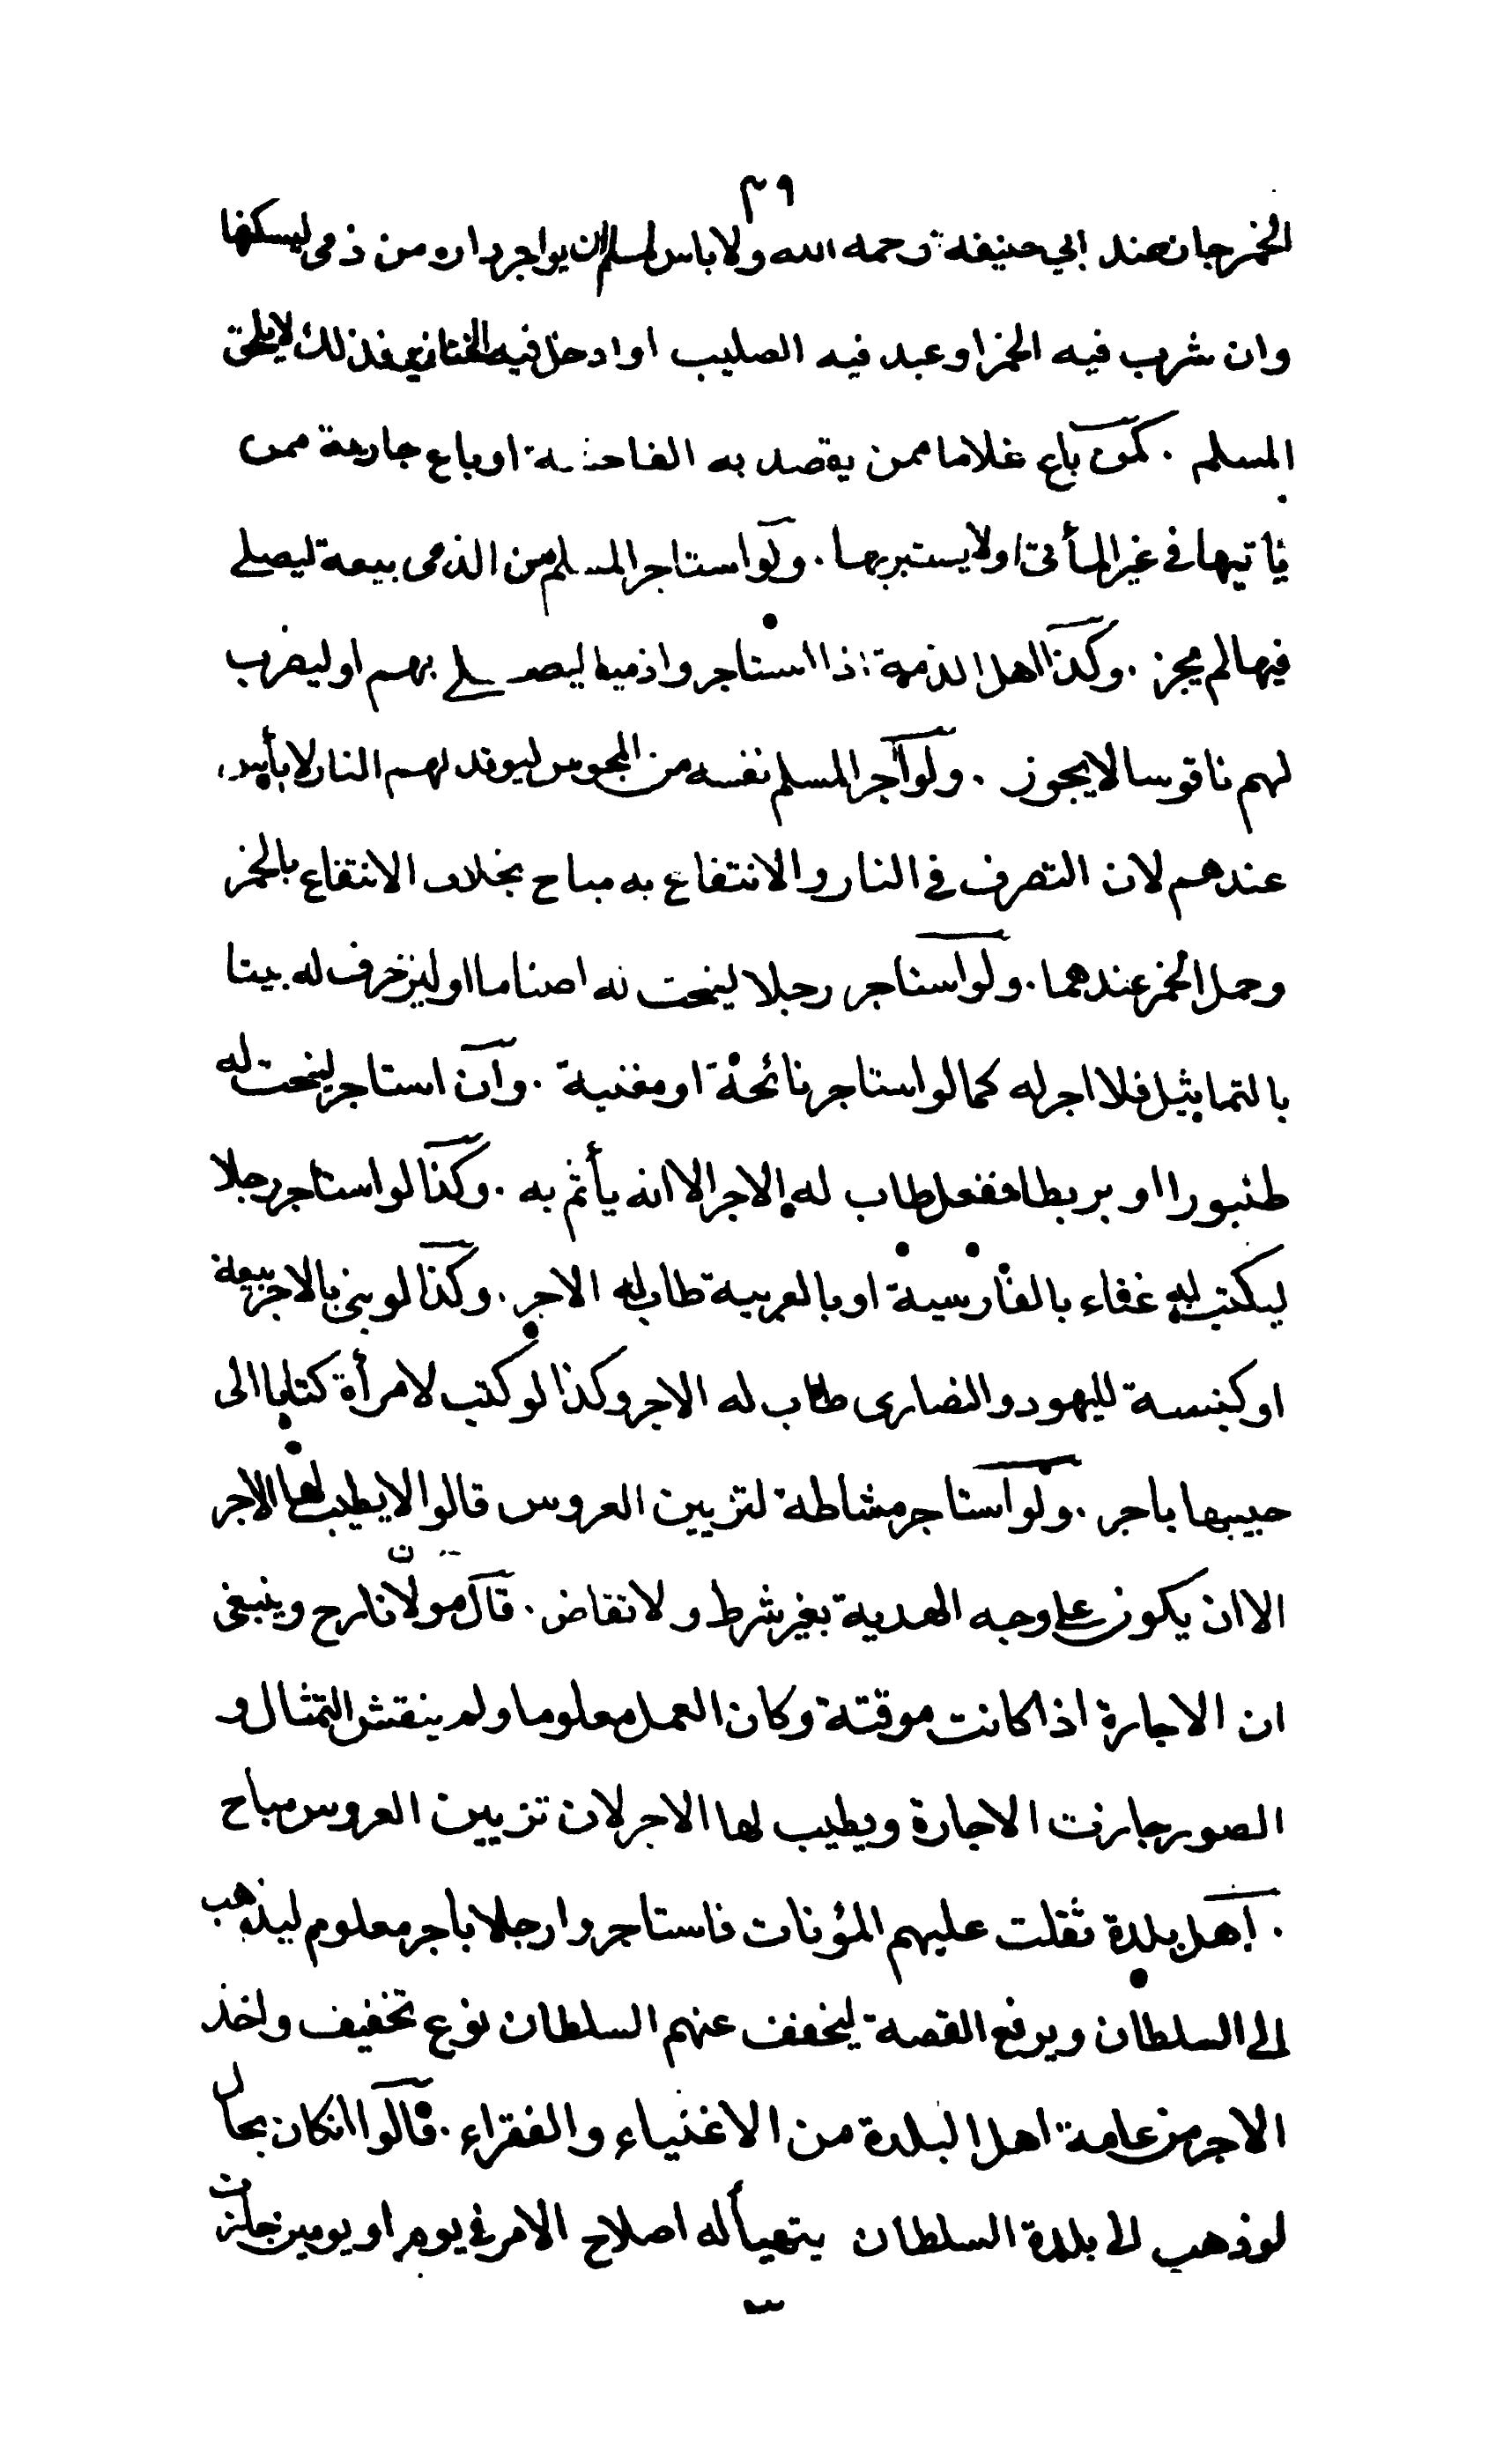 ٣٩
الخمر جاز عند ابي حنيفة رحمه الله ولا باس لمسلم ان يواجر داره من ذمى ليسكنها
وان شرب فيه الخمر او عبد فيه الصليب او ادخل فيه الخنازير فذلك لا يلحق
المسلم . كمن باع غلاما ممن يقصد به الفاحشة او باع جارية ممن
ياتيها في غير المأتى او لا يستبريها . ولو استاجر المسلم من الذمى بيعة ليصلى
فيها لم يجز . وكذا اهل الذمة اذا استاجروا ذميا ليصلى بهم او ليضرب
لهم ناقوسا لا يجوز . ولو آجر المسلم نفسه من المجوس ليوقد لهم النار لا بأس به
عندهم لان التصرف في النار والانتفاع به مباح بخلاف الانتفاع بالخمر
وحمل الخمر عندهما . ولو استاجر رجلا لينحت له اصناما او ليزخرف له بيتا
بالتماثيل فلا اجر له كما لو استاجر نائحة او مغنية . وان استاجر لينحت له
طنبورا او بربطا ففعل طاب له الاجر الا انه يأثم به . وكذا لو استاجر رجلا
ليكتب له غناء بالفارسية او بالعربية طاب له الاجر . وكذا لو بنى بالاجر بيعة
او كنيسة لليهود والنصارى طاب له الاجر وكذا لو كتب لامرأة كتابا الى
حبيبها باجر . ولو استاجر مشاطة لتزيين العروس قالوا لا يطيب لها الاجر
الا ان يكون على وجه الهدية بغير شرط ولا تقاض . قال مولانا رح وينبغى
ان الاجارة اذا كانت موقتة وكان العمل معلوما ولم ينقش التمثال و
الصور جازت الاجارة ويطيب لها الاجر لان تزيين العروس مباح
. اهل بلدة ثقلت عليهم المؤنات فاستاجروا رجلا باجر معلوم ليذهب
الى السلطان ويرفع القصة ليخفف عنهم السلطان نوع تخفيف واخذ
الاجر من عامة اهل البلدة من الاغنياء والفقراء . قالوا انكان بحال
لو ذهب الى بلدة السلطان يتهيأ له اصلاح الامر في يوم او يومين جازت